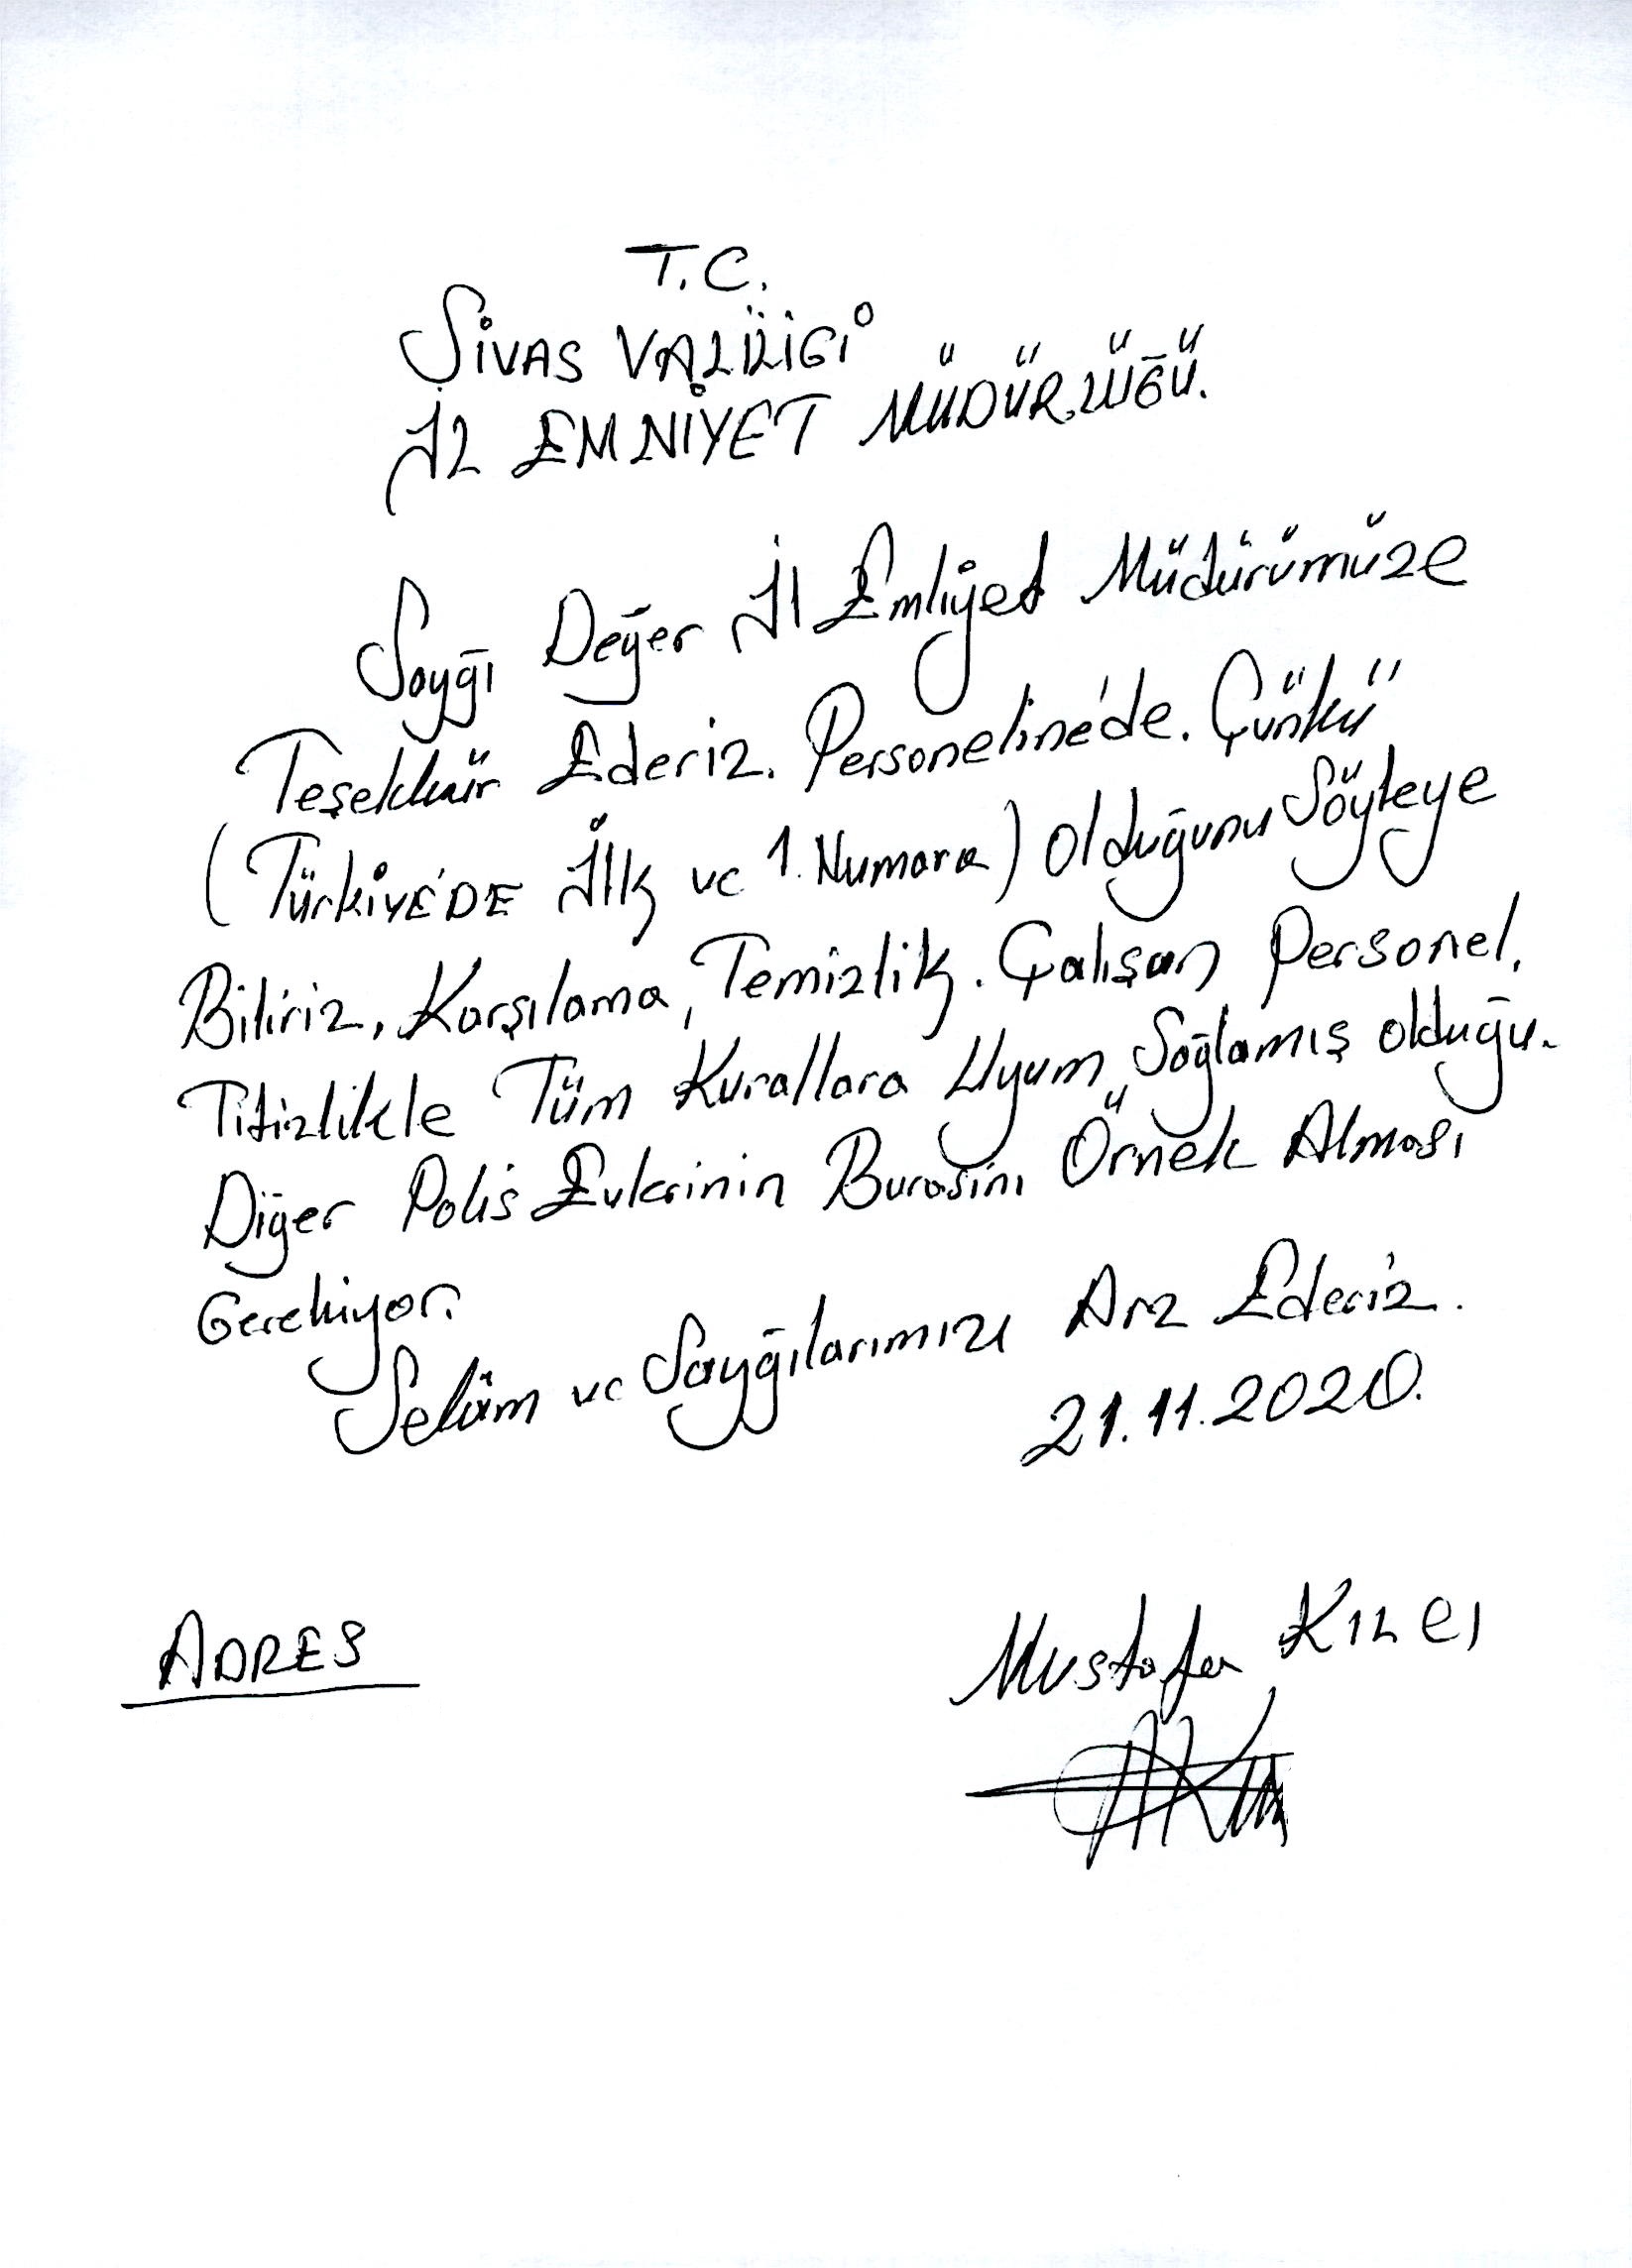 T.C.
SİVAS VALİLİĞİ
İL EMNİYET MÜDÜRLÜĞÜ.
Sayğı Değer İl Emliyet Müdürümüze
Teşekkür Ederiz. Personeline'de. Çünkü
(Türkiye'DE İlk ve 1. Numara) Olduğunu Söyleye
Biliriz, Karşılama, Temizlik. Çalışan Personel,
Titizlikle Tüm Kurallara Uyum Sağlamış olduğu.
Diğer Polis Evlerinin Burasını Örnek Alması
Gerekiyor.
Selâm ve Sayğılarımızı Arz Ederiz.
21.11.2020.
ADRES
Mustafa